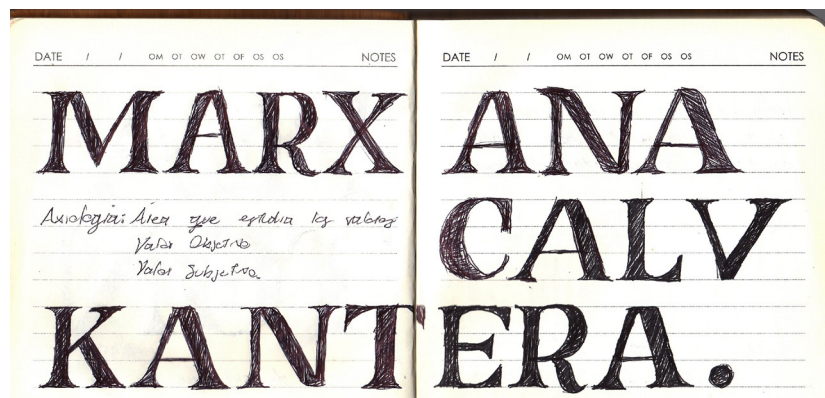 DATE / / OM OT OW OT OF OS OS NOTES
MARX
Axiología: Área que estudia los valores
Valor Objetivo
Valor Subjetivo
KANT
DATE / / OM OT OW OT OF OS OS NOTES
ANA
CALV
ERA.